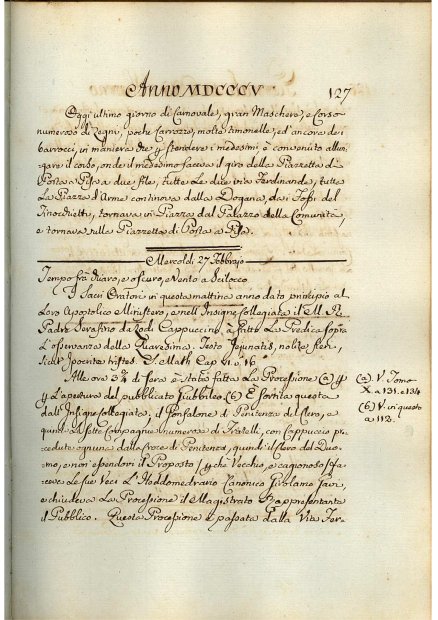 Anno MDCCCV 127
Oggi ultimo giorno di Carnovale, gran Maschere, e Corso
numeroso di Legni, poche Carrozze, molte timonelle, ed ancora dei
barrocci, in maniera che p stendere i medesimi è convenuto allun-
gare il corso, onde il medesimo faceva il giro della Piazzetta di
Porta a Pisa a due file, tutte le due vie Ferdinande, tutta
La Piazza d'Arme continova dalla Dogana, da i Fossi del
Rinochietti, tornava in Piazza dal Palazzo della Comunità,
e tornava sulla Piazzetta di Porta a Pisa.
Mercoldì 27 Febbrajo
Tempo frà chiaro, e oscuro, e Vento a Scilocco
I Sacri Oratori in questa mattina anno dato principio al
Loro Apostolico Ministero, e nell'Insigne Collegiata il M. R.
Padre Serafino da Lodi Cappuccino, à fatto La Predica sopra
L'osservanza della Quaresima. Testo Jejunatis, nolite fieri,
sicut Ipocritae tristes. S. Math. Cap. VI. v. 16.
Alle ore 3¾ di sera è stata fatta La Processione (a) p
p L'apertura del pubblicato Giubbileo (b) È sortita questa
dall'Insigne Collegiata, il Gonfalone di Penitenza del Clero, e
quindi La sette Compagnie numerose di Fratelli, con Cappuccio pre-
cedute ognuna dalla Croce di Penitenza, quindi il Clero del Duo-
mo, e non essendovi il Proposto p che Vecchio, e cagionoso fa-
ceva Le sue Veci L'Abdomedrario Canonico Girolamo
e chiudeva La Processione il Magistrato Rappresentante
il Pubblico. Questa Processione è passata dalla Via Fer-
(a) V. Tomo
X. a 131. e 134
(b) V. in questo
a 112.